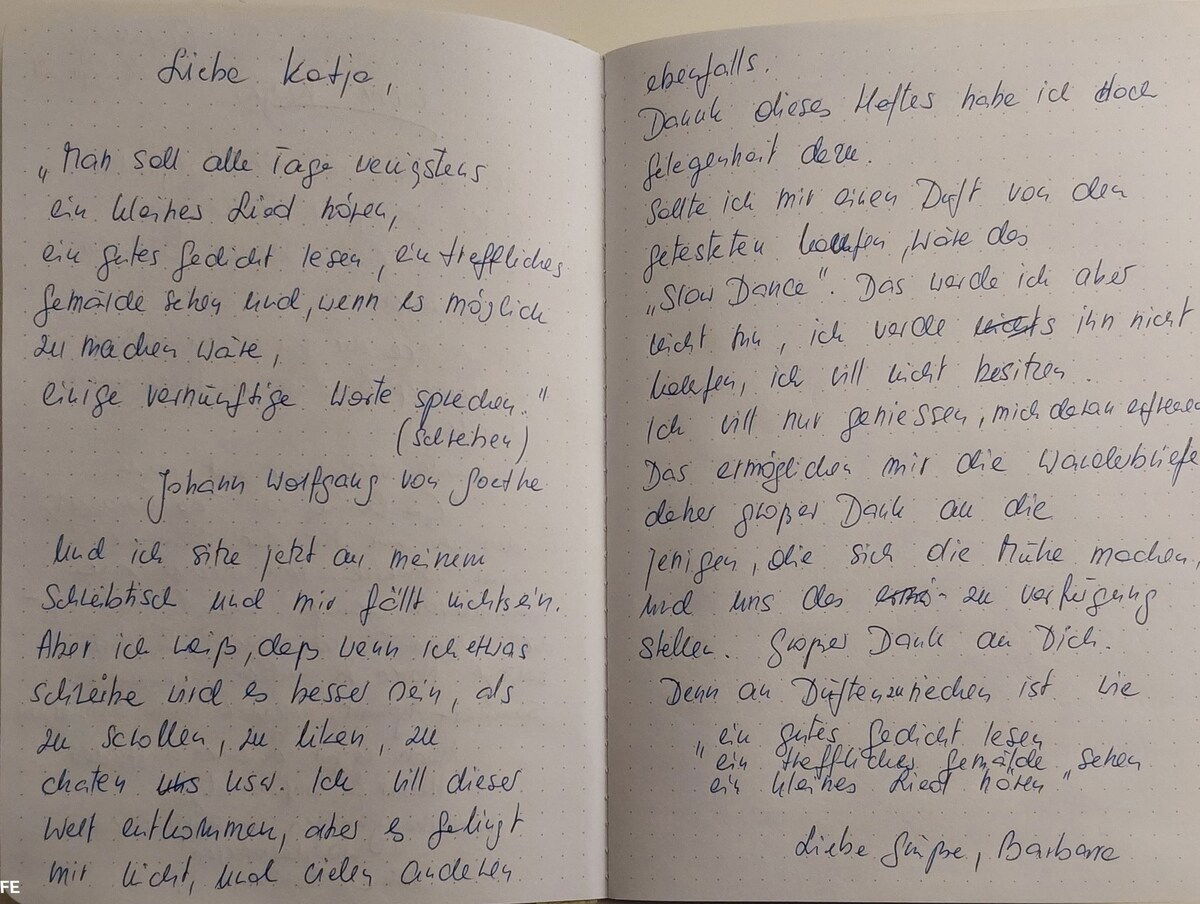 Liebe Katja,
„Man soll alle Tage wenigstens
ein kleines Lied hören,
ein gutes Gedicht lesen, ein treffliches
Gemälde sehen und, wenn es möglich
zu machen wäre,
einige vernünftige Worte sprechen."
(schreiben)
Johann Wolfgang von Goethe
Und ich sitze jetzt an meinem
Schreibtisch und mir fällt nichts ein.
Aber ich weiß, daß wenn ich etwas
schreibe wird es besser sein, als
zu scrollen, zu liken, zu
chaten usw. Ich will dieser
Welt entkommen, aber es gelingt
mir nicht, und vielen anderen
ebenfalls.
Dank dieses Heftes habe ich doch
Gelegenheit dazu.
Sollte ich mir einen Duft von den
getesteten kaufen, wäre das
„Slow Dance". Das werde ich aber
nicht tun, ich werde ihn nicht
kaufen, ich will nicht besitzen.
Ich will nur geniessen, mich daran erfreuen
Das ermöglichen mir die Wanderbriefe
daher großer Dank an die
jenigen, die sich die Mühe machen,
und uns das zu verfügung
stellen. Großer Dank an Dich.
Denn an Düften zu riechen ist wie
„ein gutes Gedicht lesen
"ein treffliches Gemälde sehen
ein kleines Lied hören"
Liebe Grüße, Barbara
FE